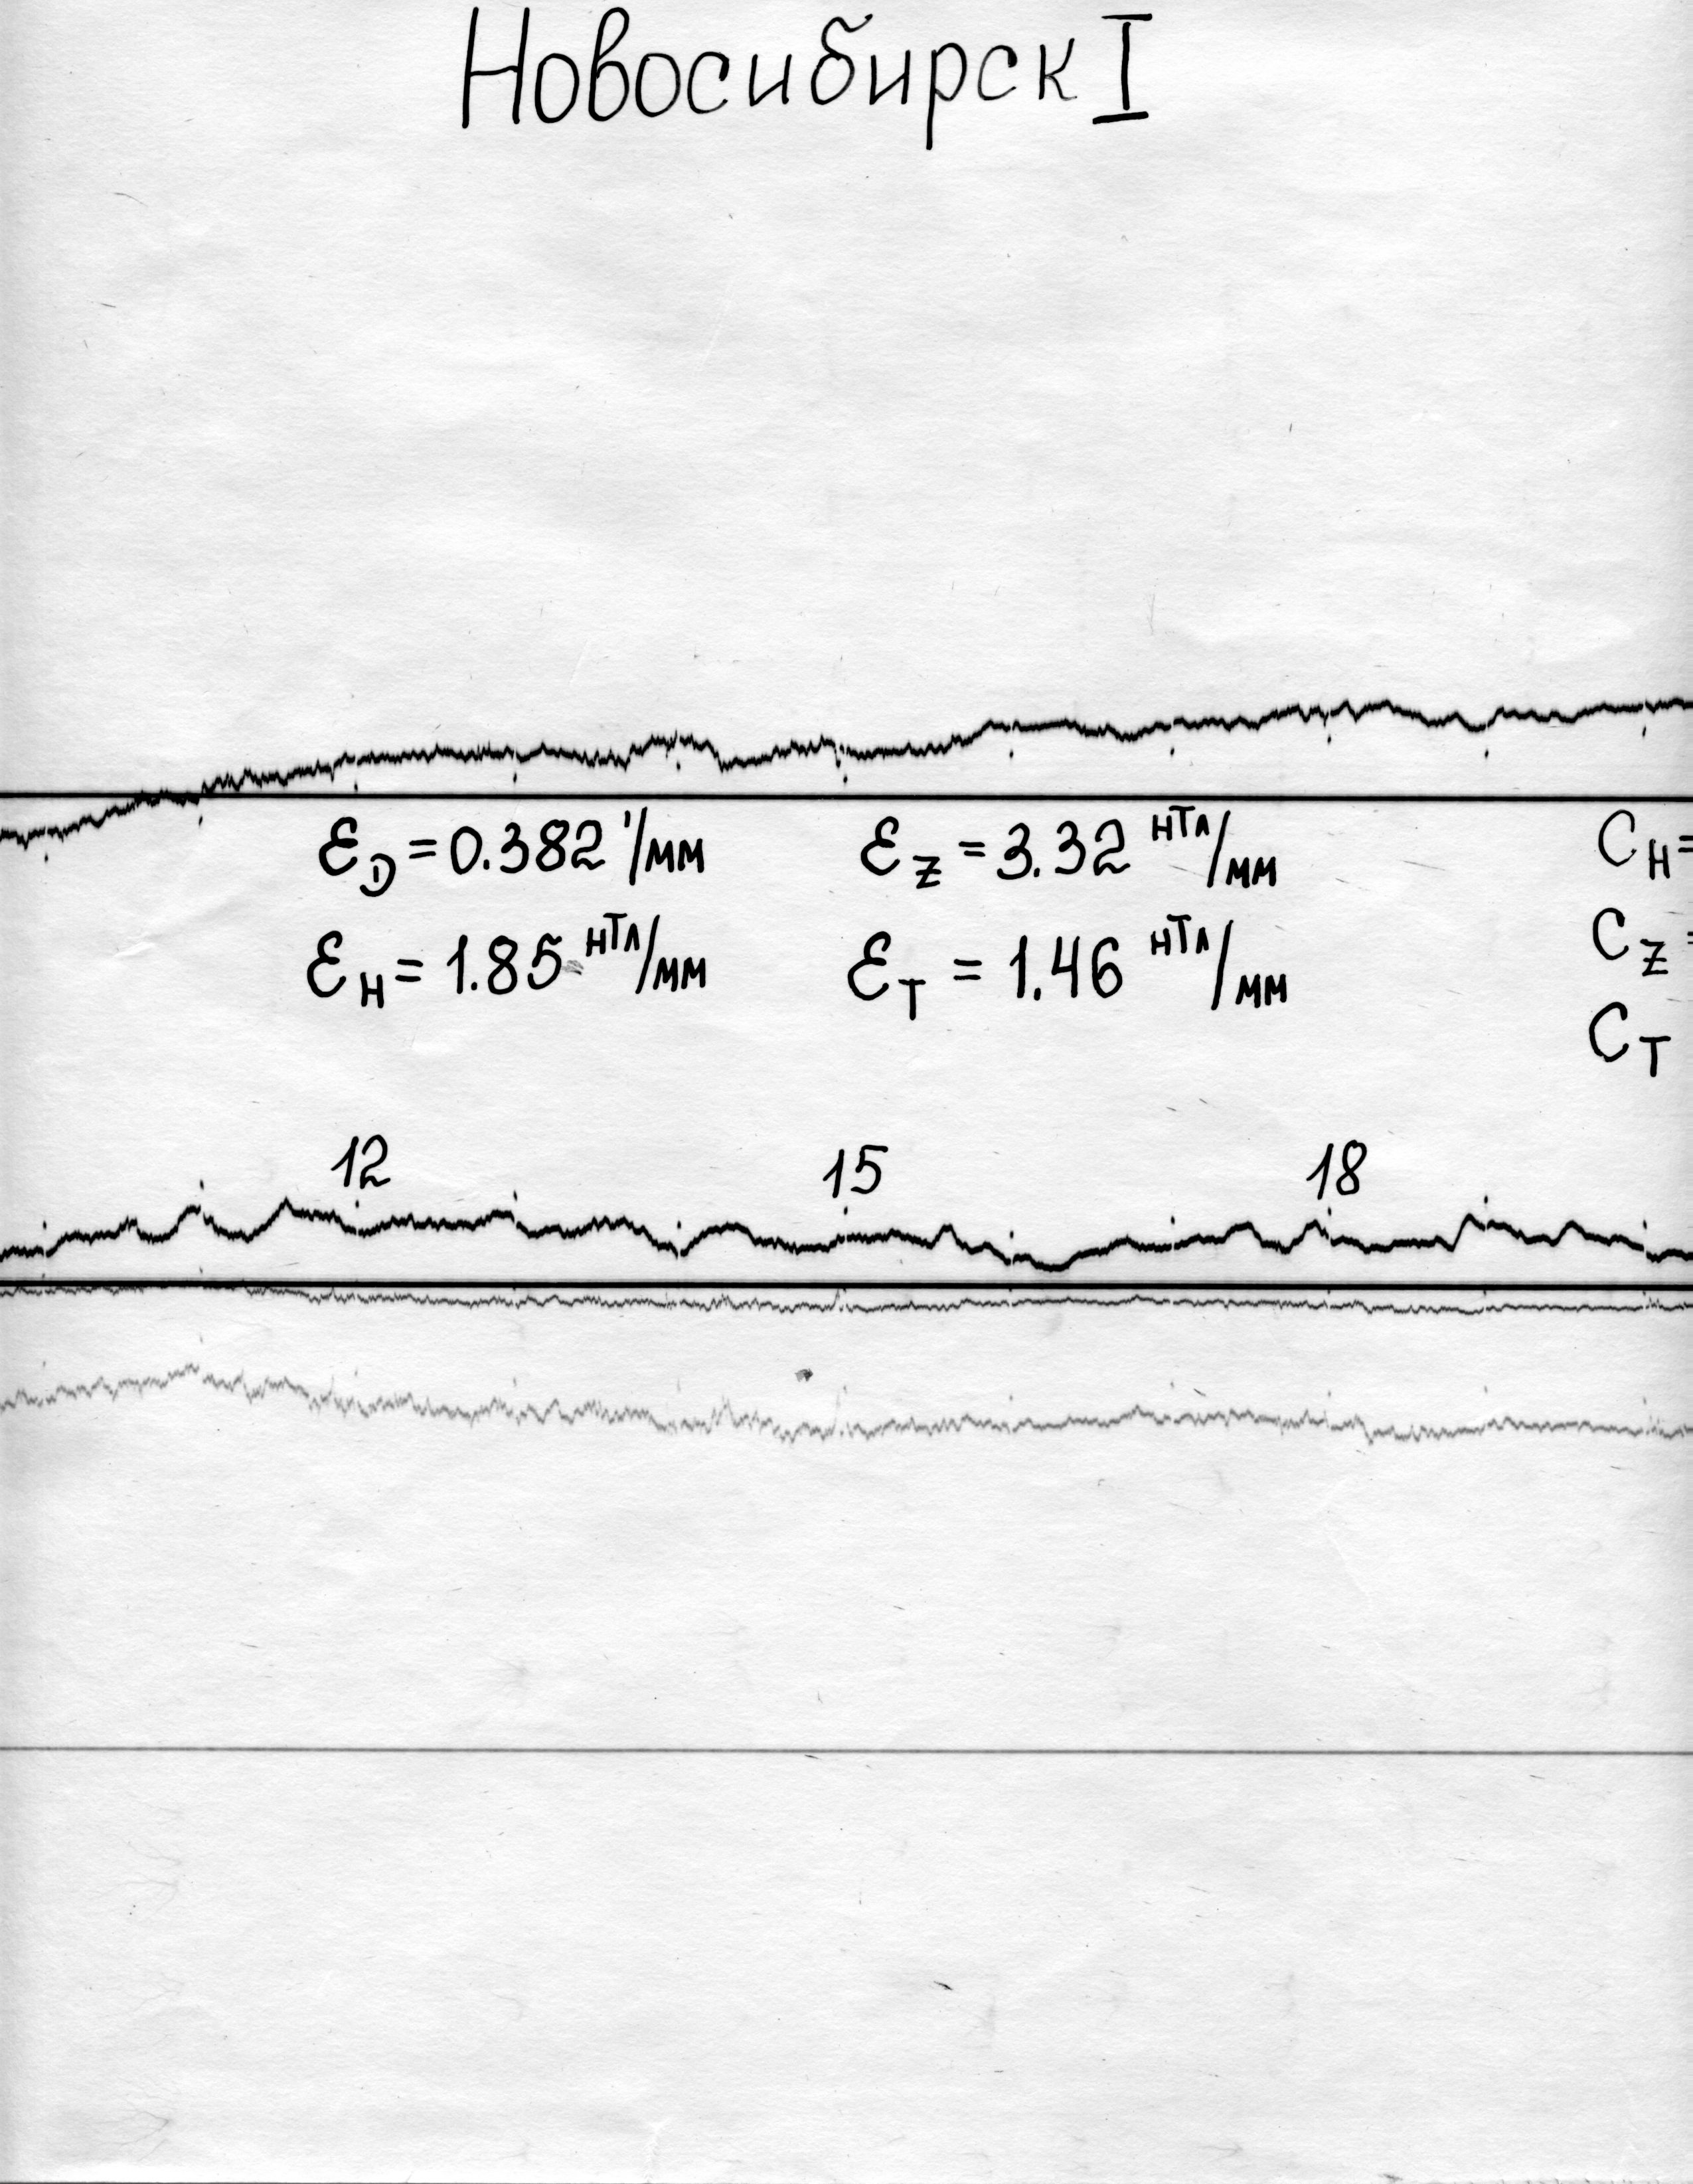 Новосибирск I
ε_D = 0.382 '/мм ε_Z = 3.32 нТл/мм C_H =
ε_H = 1.85 нТл/мм ε_T = 1.46 нТл/мм C_Z =
C_T
12 15 18